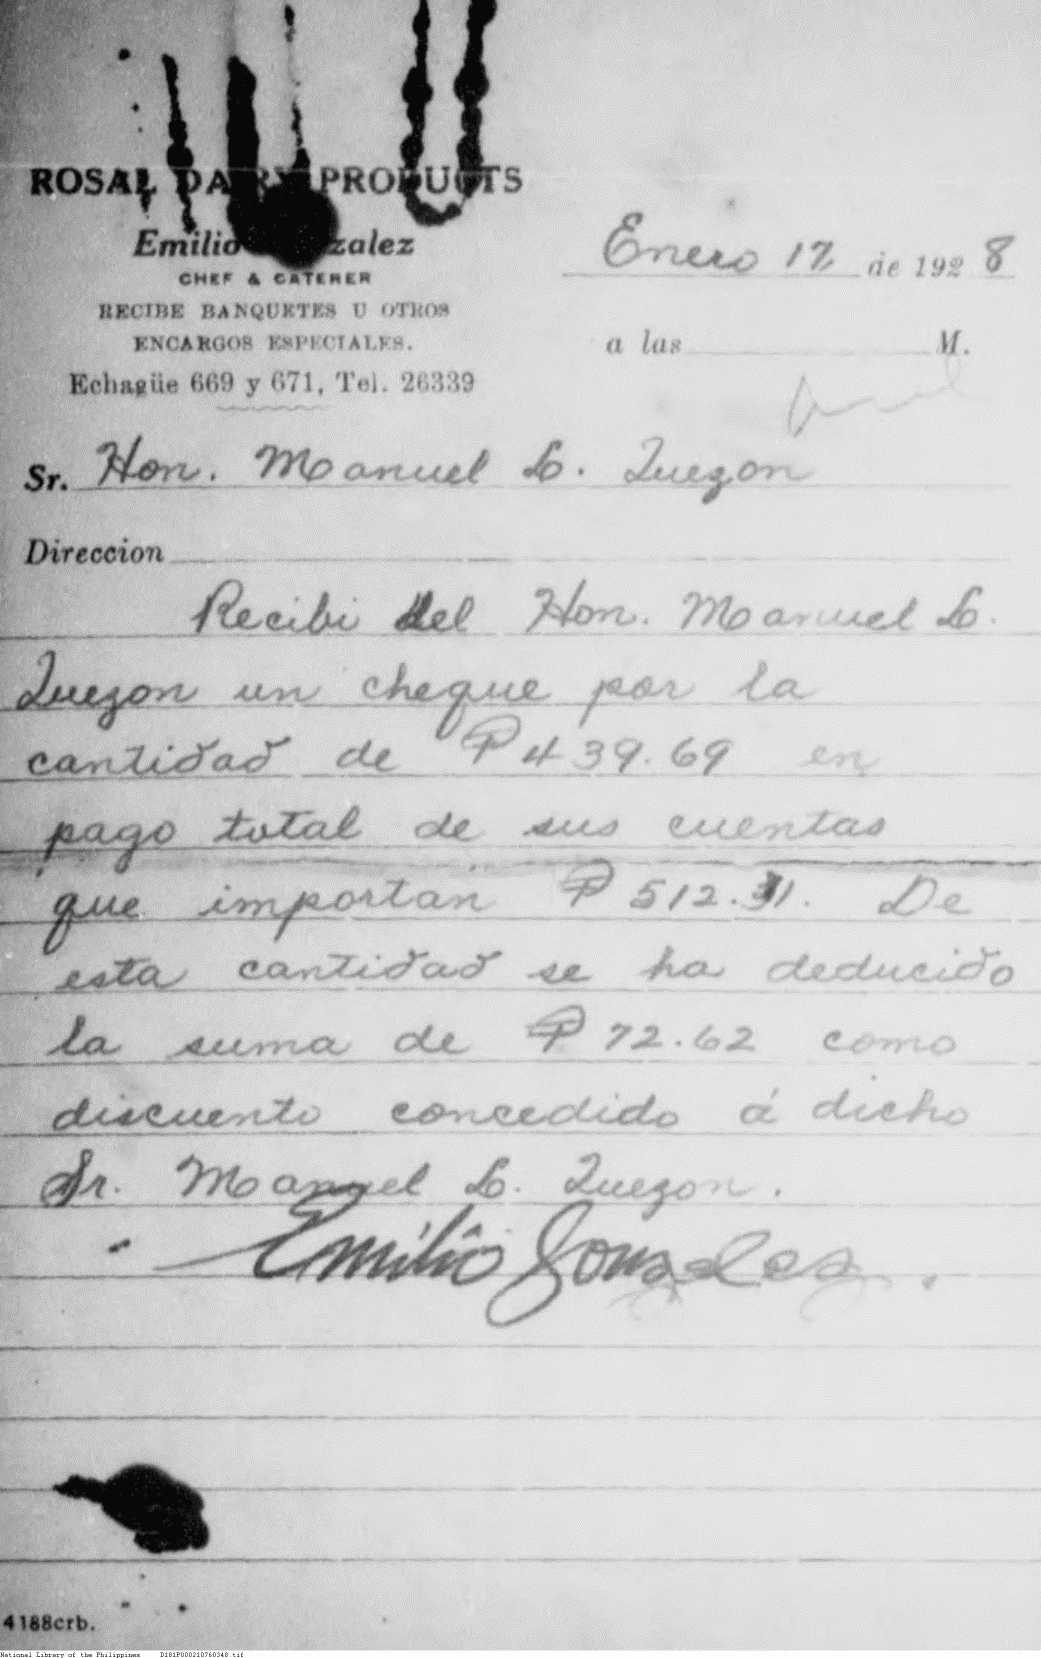 ROSAL DAIRY PRODUCTS
Emilio Gonzalez
CHEF & CATERER
RECIBE BANQUETES U OTROS
ENCARGOS ESPECIALES.
Echagüe 669 y 671, Tel. 26339
Enero 12 de 1928
a las M.
Sr. Hon. Manuel L. Quezon
Direccion
Recibi del Hon. Manuel L.
Quezon un cheque por la
cantidad de ₱ 439.69 en
pago total de sus cuentas
que importan ₱ 512.31. De
esta cantidad se ha deducido
la suma de ₱ 72.62 como
discuento concedido á dicho
Sr. Manuel L. Quezon.
Emilio Gonzalez.
4188crb.
National Library of the Philippines D181P000210760348.tif